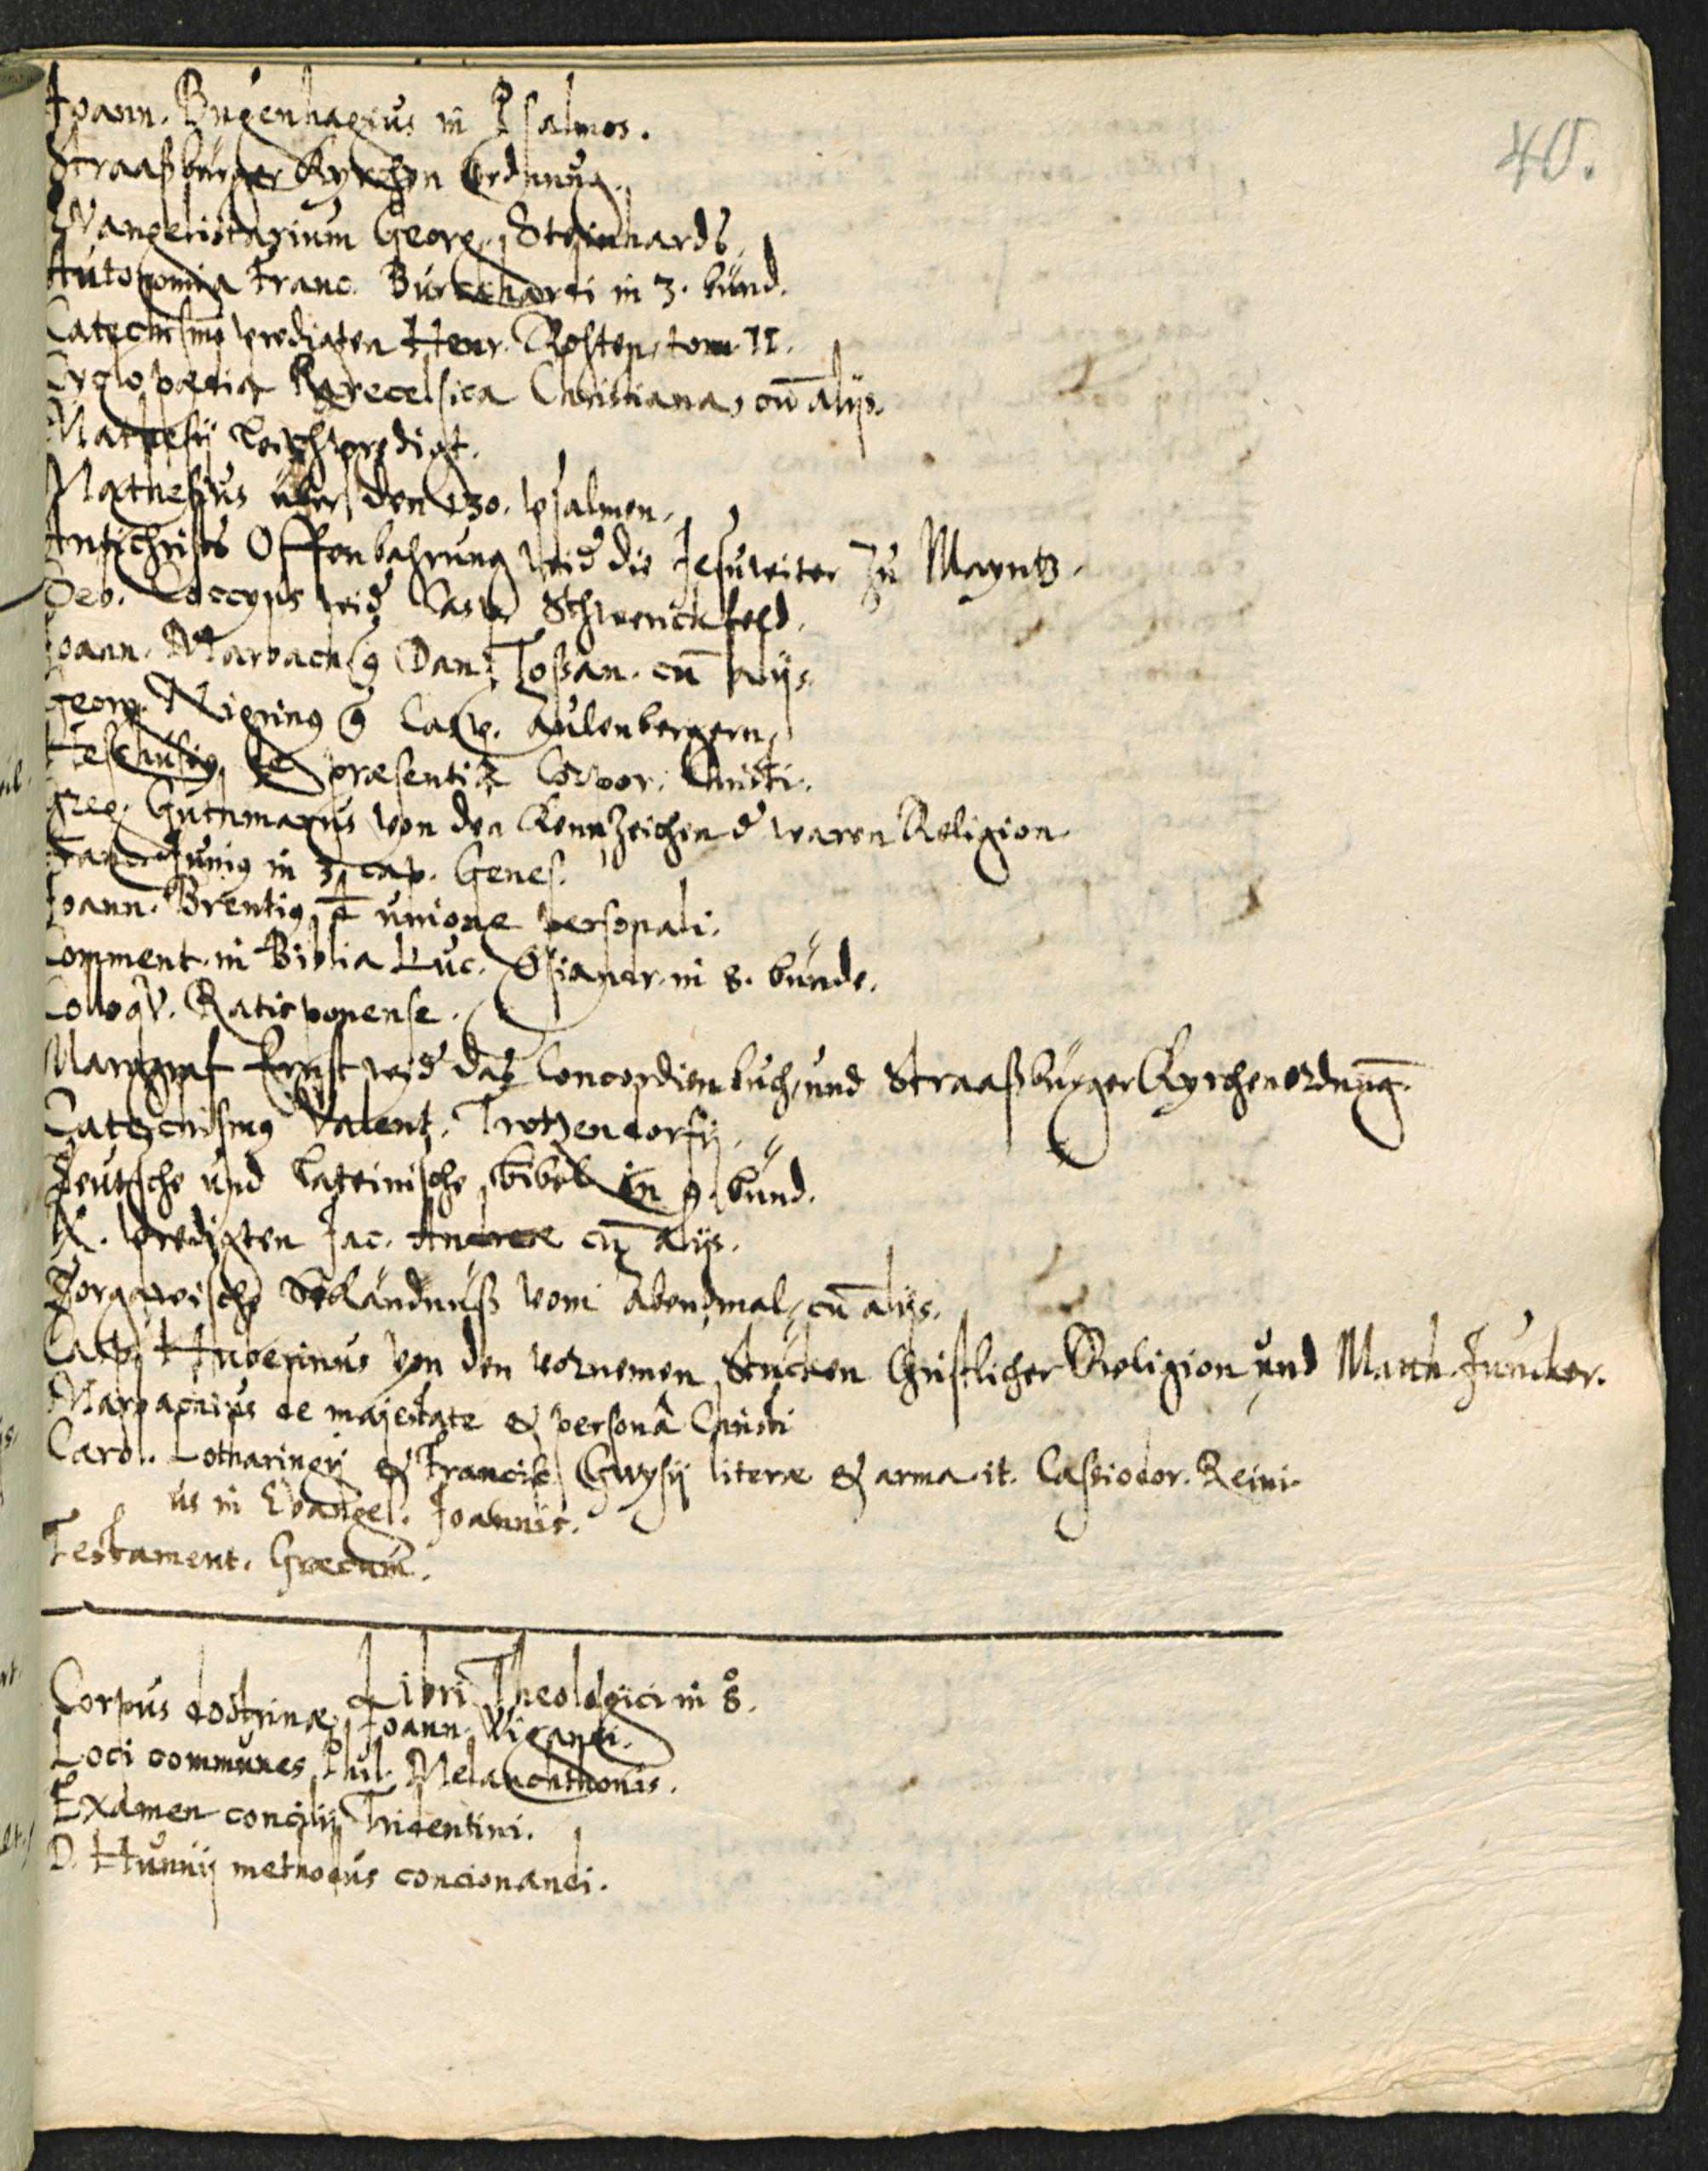 40.
Joann. Bugenhagius in Psalmos.
Straaßburger Kyrchen Ordnung.
Evangelistarium Georg. Steinhards,
Autonomia Franc. Burckharti in 3. bünd.
Catechismg predigten Henr. Rosten, tom. II.
Cyclopædia Christiana, cū alijs.
Mathesij Leychpredigt.
Mathesius über den 130. psalmen.
Antichrists Offenbahrung wid die Jesuwiter zu Mayntz.
Seb. Coccyus wid Casp. Schwenckfeld.
Joann. Marbach Dan. Toßan. cū alijs.
Georg. Nigring Casp. Aulenbergern,
Heshusig, de præsentia Corpor. Christi.
Greg. Guthmarus von den Kennzeichen d waren Religion
Franc. Junig in 3. cap. Genes.
Joann. Brentig, unione personali.
Comment. in Biblia Luc. Osiandr. in 8. bünde.
Colloqv. Ratisponense.
Marggraf Ernst wid das Concordienbuch, und Straaßburger Kyrchenordnūg.
Catechismg Valent. Trotzendorfij.
Teutsche und Lateinische Bibel in 9. bünd.
predigten Jac. Andreæ cū alijs.
Torgawische Bekändnüß vom Abendmal, cū alijs.
Casp. Huberinus von den vornemen Stucken Christlicher Religion und Matth. Juncker.
Marbachius de majestate & personâ Christi
Carol. Lotharingij & Francisc. Gwysij literæ & arma. it. Cassiodor. Reini-
us in Evangel. Joannis.
Testament. Græcum.
Libri Theologici in 8.
Corpus doctrinæ, Joann. Wigandi.
Loci communes Phil. Melanchthonis.
Examen concilij Tridentini.
D. Hunnij methodus concionandi.